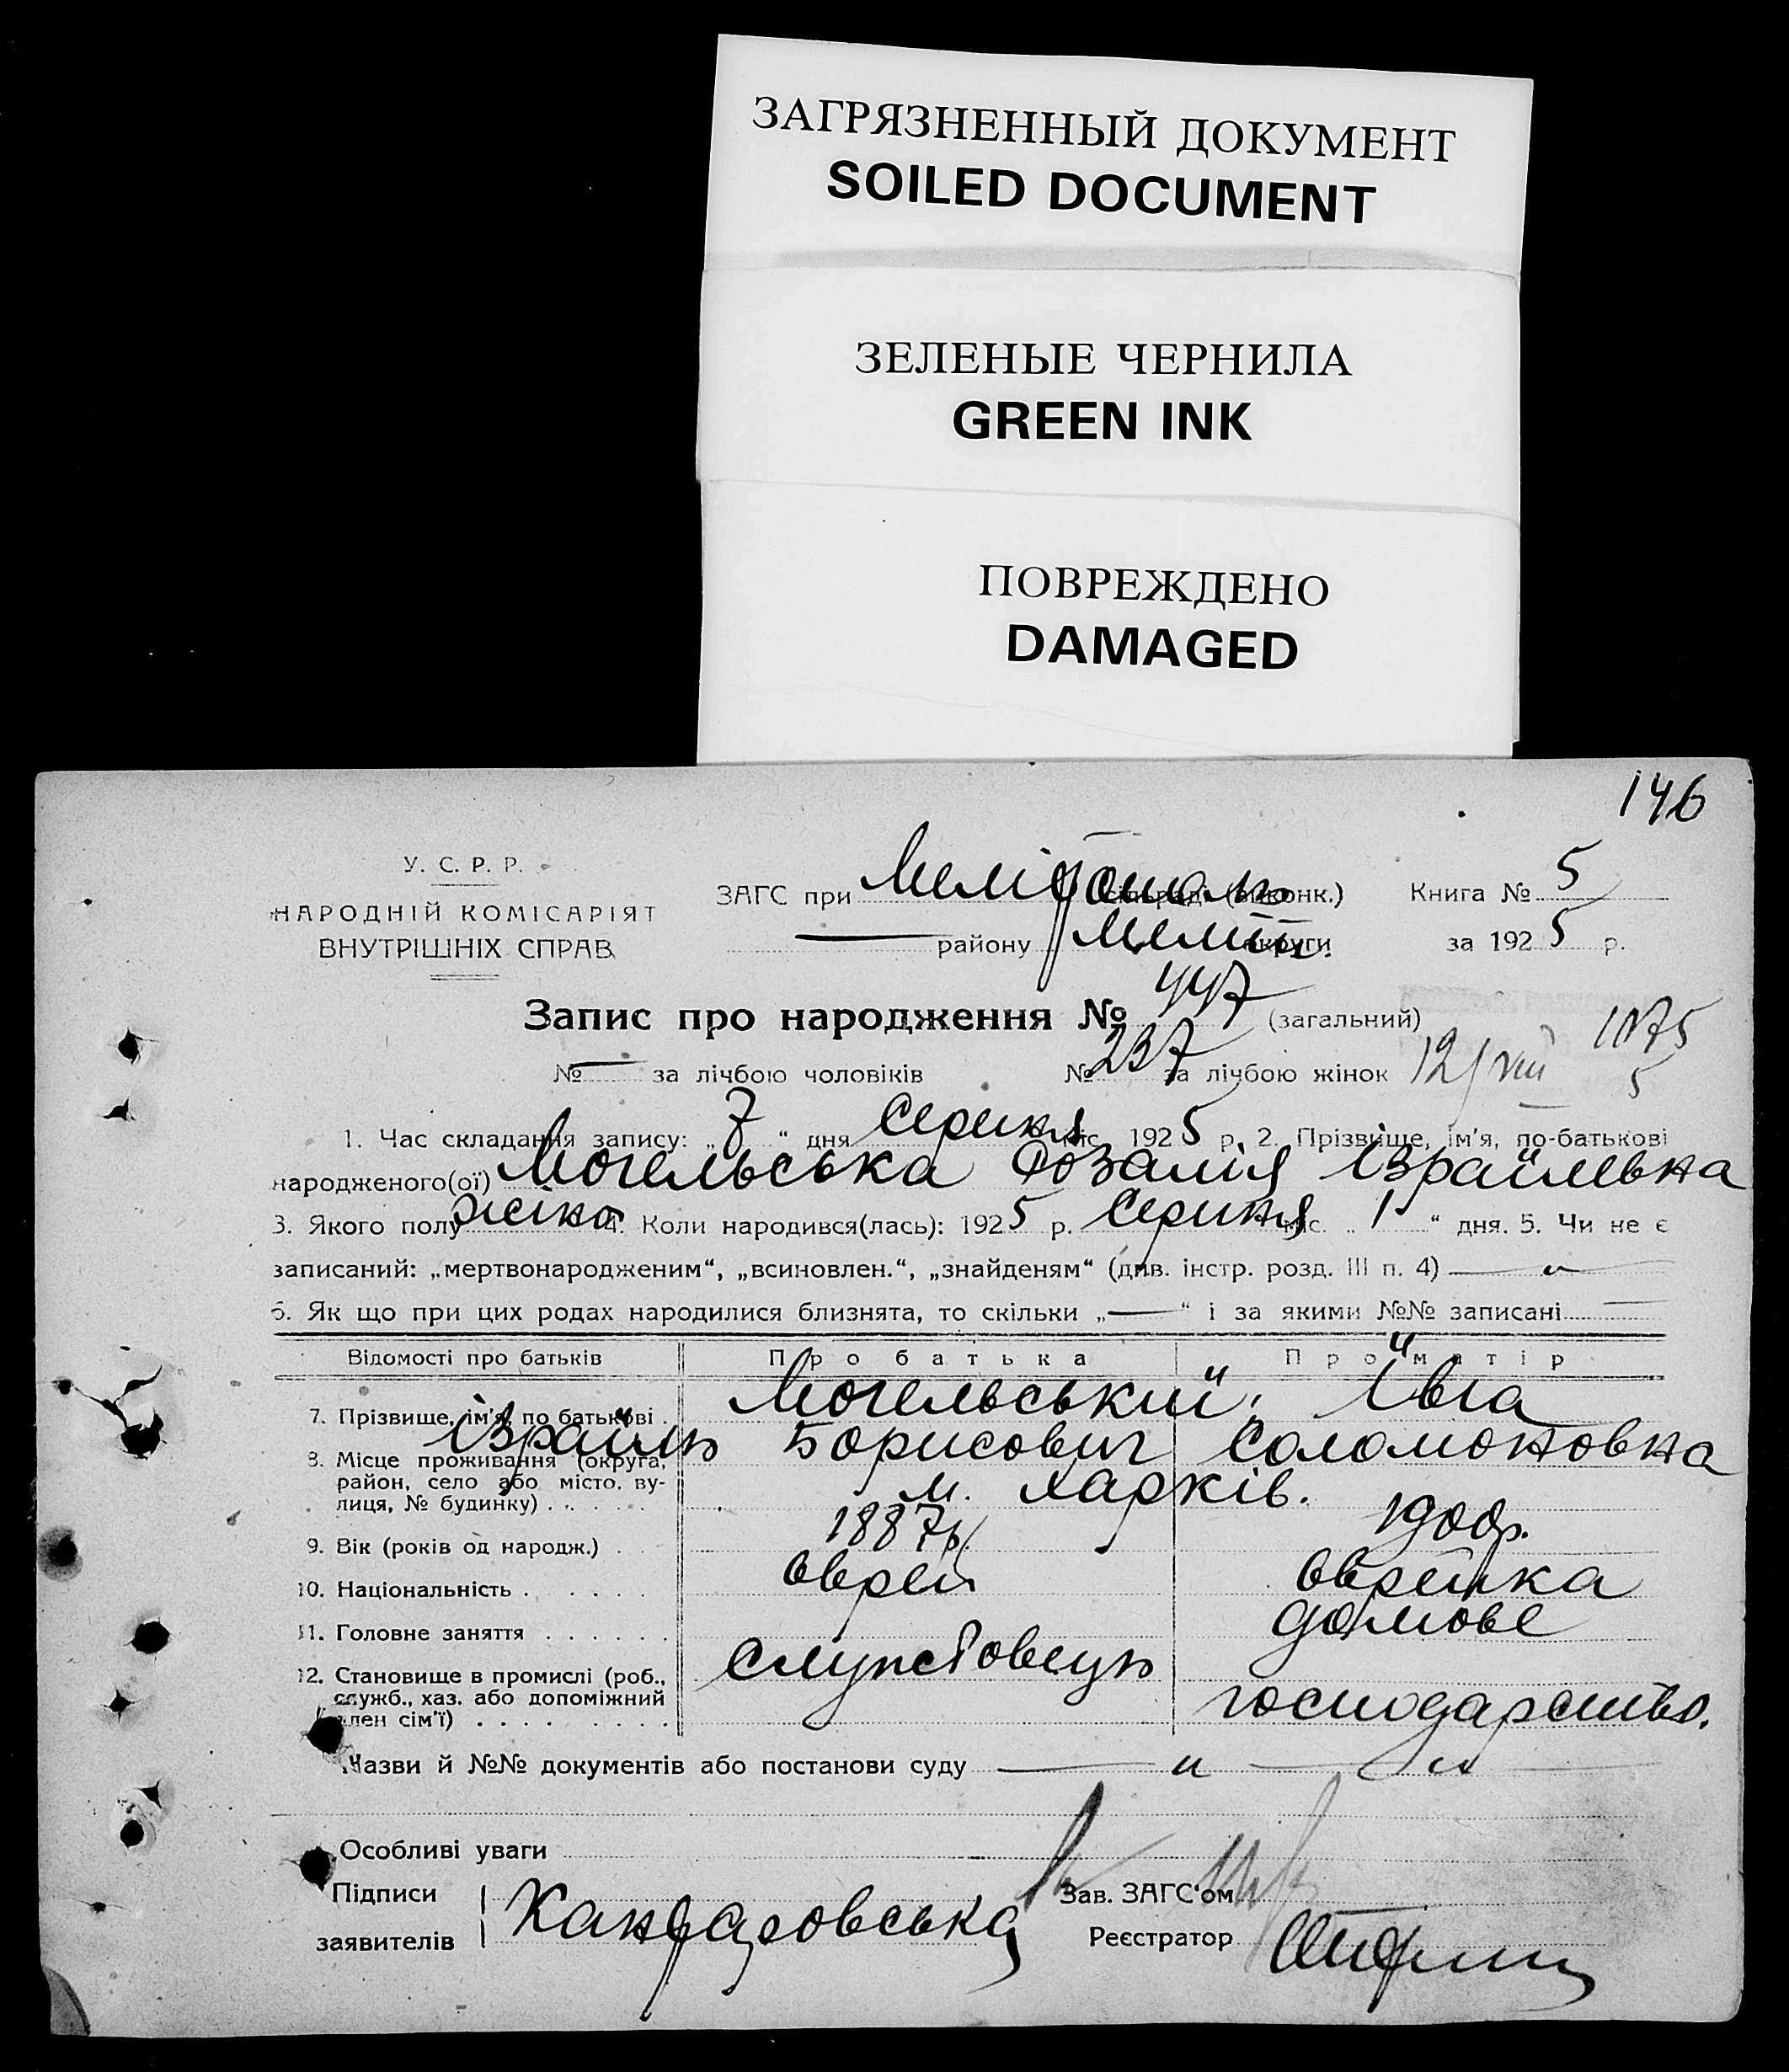 ЗАГРЯЗНЕННЫЙ ДОКУМЕНТ
SOILED DOCUMENT
ЗЕЛЕНЫЕ ЧЕРНИЛА
GREEN INK
ПОВРЕЖДЕНО
DAMAGED
146
У. С. Р. Р.
НАРОДНІЙ КОМІСАРІЯТ
ВНУТРІШНІХ СПРАВ
ЗАГС при Меліт (виконк.) Книга № 5
— району Меліт. округи за 1925 р.
Запис про народження № 447 (загальний)
№ — за лічбою чоловіків № 237 за лічбою жінок 12/VIII 1075
5
1. Час складання запису: „7“ дня Серпня міс. 1925 р. 2. Прізвище, ім'я, по-батькові
народженого(ої) Могельська Розалія Ізраїлевна
3. Якого полу жіно 4. Коли народився(лась): 1925 р. Серпня міс. „1“ дня. 5. Чи не є
записаний: „мертвонародженим“, „всиновлен.“, „знайденям“ (див. інстр. розд. III п. 4) —„—
6. Як що при цих родах народилися близнята, то скільки „—“ і за якими №№ записані —
Відомості про батьків Про батька Про матір
7. Прізвище, ім'я, по батькові . Могельський, Ївга
Ізраїль Борисович Соломоновна
8. Місце проживання (округа,
район, село або місто, вулиця, № будинку) . . . . . м. Харків.
9. Вік (років од народж.) . 1887р. 1900р.
10. Національність . . . . . Єврей Єврейка
11. Головне заняття . . . . . . Службовець домове
12. Становище в промислі (роб.,
служб., хаз. або допоміжний
член сім'ї) . . . . . . . . господарство.
Назви й №№ документів або постанови суду — „ — „ —
Особливі уваги
Підписи
заявителів
Зав. ЗАГС'ом
Реєстратор